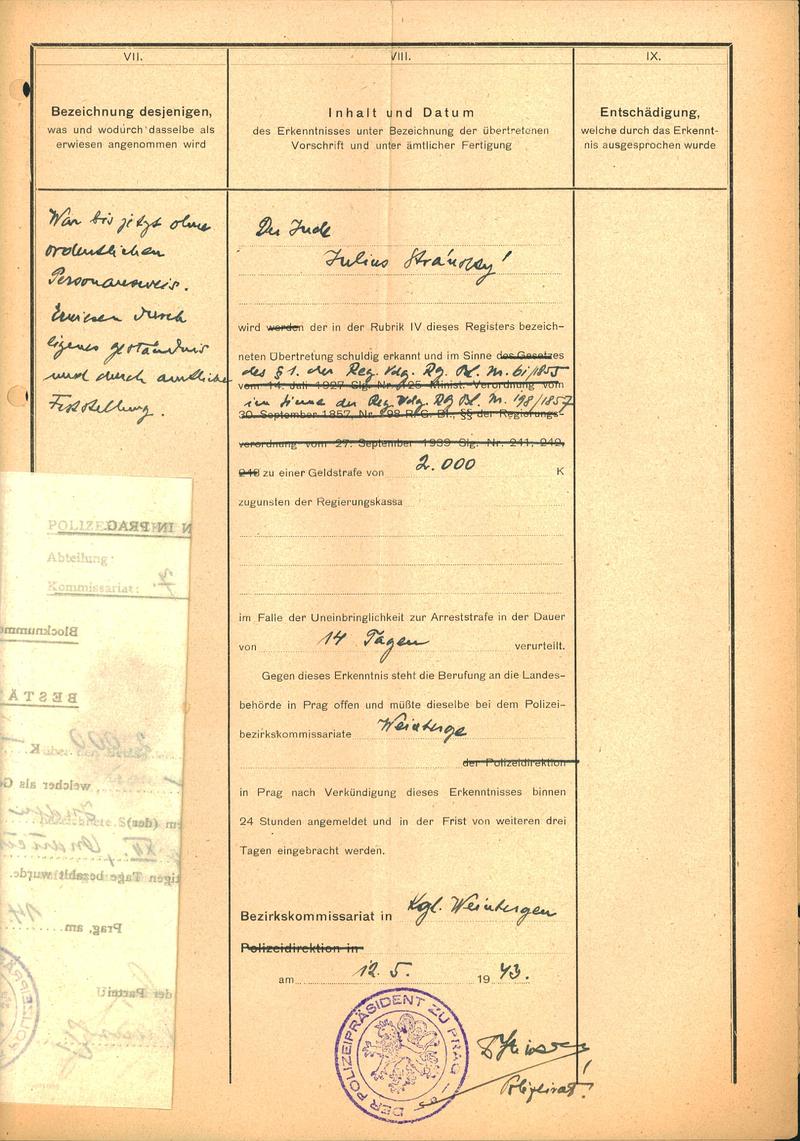 VII.
Bezeichnung desjenigen,
was und wodurch dasselbe als
erwiesen angenommen wird
VIII.
Inhalt und Datum
des Erkenntnisses unter Bezeichnung der übertretenen
Vorschrift und unter ämtlicher Fertigung
IX.
Entschädigung,
welche durch das Erkennt-
nis ausgesprochen wurde
War bis jetzt ohne
ordentlichen
Personausweis.
Erwiesen durch
eigenes geständnis
und durch amtliche
Feststellung.
Der Jude
Julius Stránský!
wird werden der in der Rubrik IV dieses Registers bezeich-
neten Übertretung schuldig erkannt und im Sinne des Gesetzes
des § 1. der Reg. Vdg. Rg. Bl. Nr. 61/1855
vom 14. Juli 1927 Slg. Nr. 125 Minist. Verordnung vom
im Sinne der Reg. Vdg. RG Bl. Nr. 198/1857
30. September 1857, Nr. 198 R. G. Bl., §§ der Regierungs-
verordnung vom 27. September 1939 Slg. Nr. 241, 242,
zu einer Geldstrafe von 2.000 K
zugunsten der Regierungskassa
im Falle der Uneinbringlichkeit zur Arreststrafe in der Dauer
von 14 Tagen verurteilt.
Gegen dieses Erkenntnis steht die Berufung an die Landes-
behörde in Prag offen und müßte dieselbe bei dem Polizei-
bezirkskommissariate Weinberge
der Polizeidirektion
in Prag nach Verkündigung dieses Erkenntnisses binnen
24 Stunden angemeldet und in der Frist von weiteren drei
Tagen eingebracht werden.
Bezirkskommissariat in Kgl. Weinbergen
Polizeidirektion in
am 12. 5. 1943.
DER POLIZEIPRÄSIDENT ZU PRAG
Polizeirat!
POLIZEI
N IN PRAG
Abteilung:
Kommissariat: 7.
Blocknumme
BESTÄ
2000
K
welcher als G
m (der)
XII.
tigen Tage bezahlt wurde.
Prag, am
14
der Partei